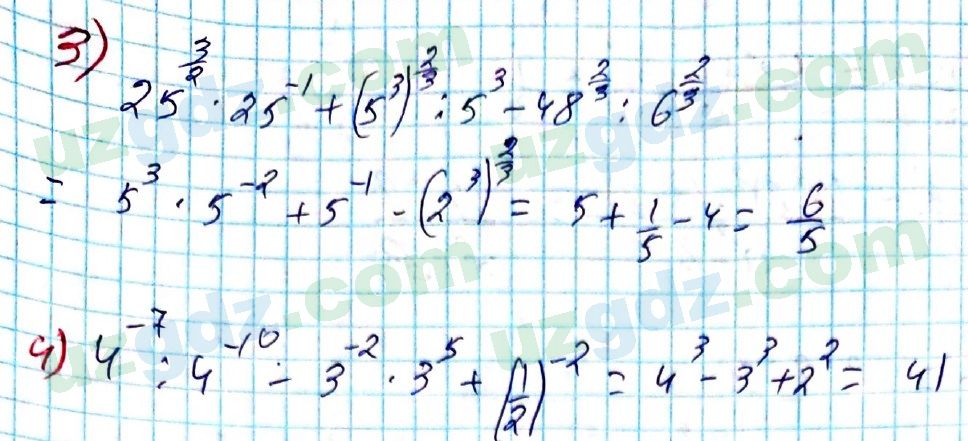 3) 25^(3/2) · 25^(-1) + (5^3)^(2/3) : 5^3 - 48^(2/3) : 6^(2/3)
= 5^3 · 5^(-2) + 5^(-1) - (2^3)^(2/3) = 5 + 1/5 - 4 = 6/5
4) 4^(-7) : 4^(-10) - 3^(-2) · 3^5 + (1/2)^(-2) = 4^3 - 3^3 + 2^2 = 41
uzgdz.com
uzgdz.com
uzgdz.com
uzgdz.com